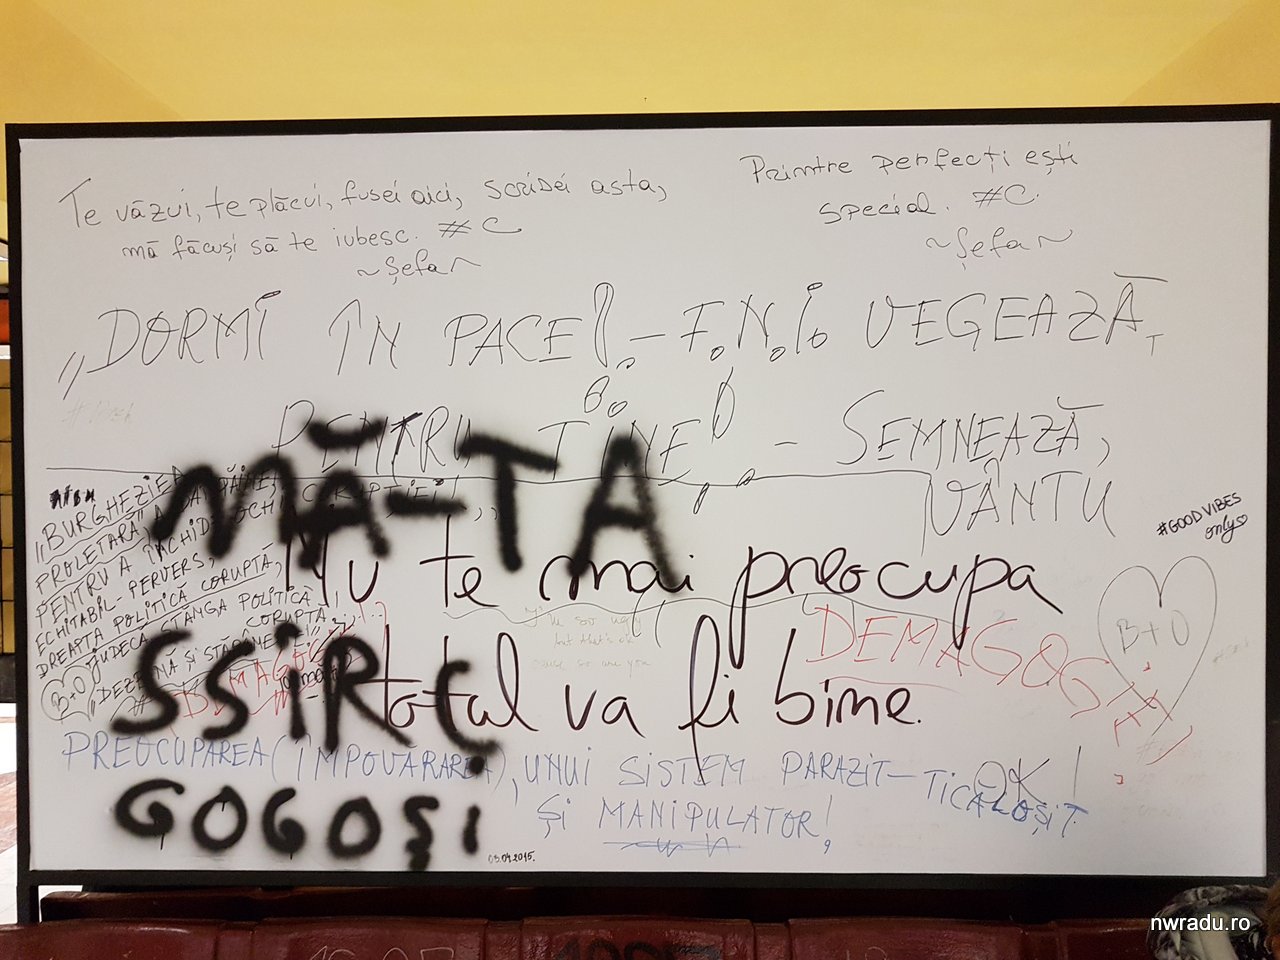 Te văzui, te plăcui, fusei aici, scrisei asta,
mă făcuși să te iubesc. #C
~Șefa~
Printre perfecți ești
special. #C
~Șefa~
„DORMI ÎN PACE! – F.N.I. VEGEAZĂ
PENTRU TINE! – SEMNEAZĂ,
VÂNTU
MĂ-TA
„BURGHEZIE
PROLETARĂ"
CORUPȚIEI,
PENTRU A ÎNCHIDE OCHI
ECHITABIL-PERVERS,
DREAPTA POLITICĂ CORUPTĂ,
JUDECA STÂNGA POLITICĂ
CORUPTĂ
B+O
#GOODVIBES
only
Nu te mai preocupa
total va fi bine.
I'm so ugly
but that's ok
cause so are you
DEMAGOGII
B+O
SSIRC
PREOCUPAREA (ÎMPOVĂRAREA), UNUI SISTEM PARAZIT – TICĂLOȘIT
OK!
ȘI MANIPULATOR!
GOGOȘI
03.04.2015.
nwradu.ro